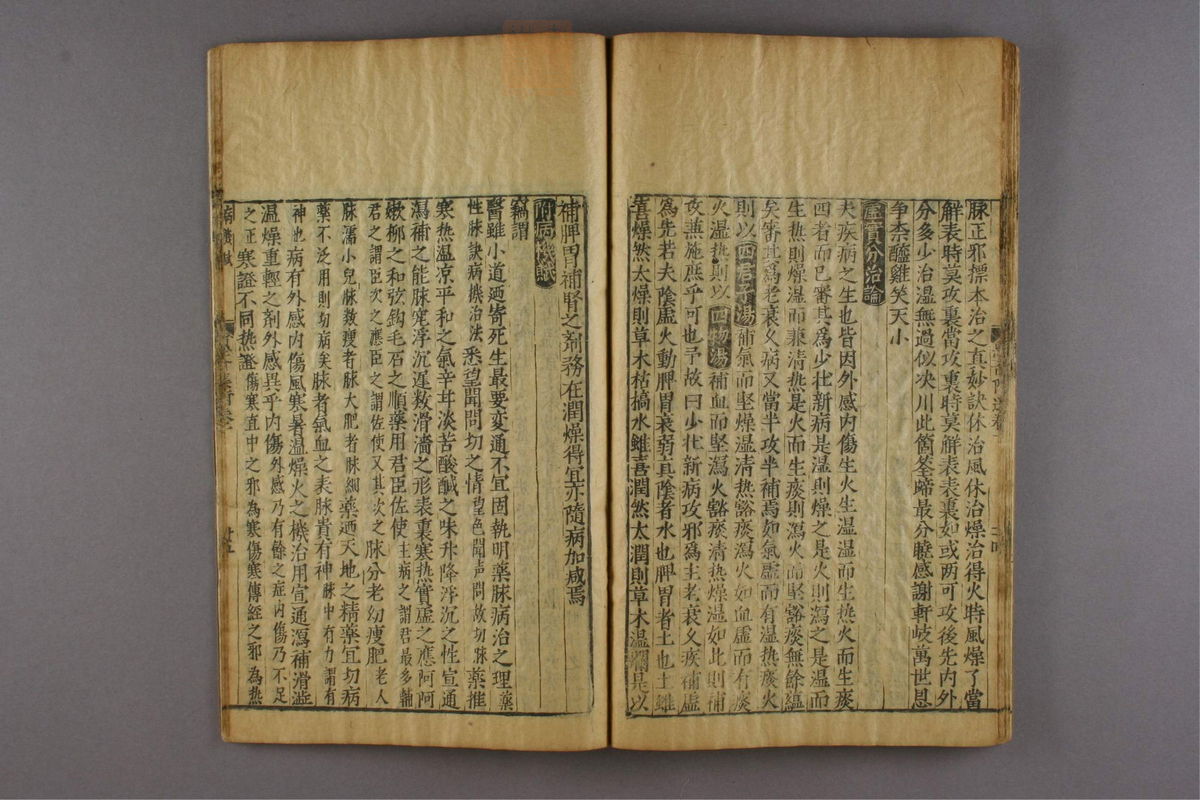 脉正邪標本治之真妙訣休治風休治燥治得火時風燥了當
解表時莫攻裏當攻裏時莫觧表表裏如或两可攻後先内外
分多少治温無過似决川此箇筌啼最分瞭感謝軒岐萬世恩
争柰醯雞笑天小
虚實分治論
夫疾病之生也皆因外感内傷生火生温温而生热火而生痰
四者而已審其爲少壮新病是温則燥之是火則瀉之是温而
生热則燥温而兼清热是火而生痰則瀉火而坚豁痰無餘藴
矣審其爲老衰久病又當半攻半補焉如氣虚而有温热痰火
則以四君子湯補氣而坚燥温清热豁痰瀉火如血虚而有痰
火温热則以四物湯補血而坚瀉火豁痰清热燥温如此則補
攻兼施庶乎可也予故曰少壮新病攻邪爲主老衰久疾補虚
為先若夫陰虚火動脾胃衰弱真陰者水也脾胃者土也土雖
喜燥然太燥則草木枯槁水雖喜潤然太潤則草木温爛是以
補脾胃補腎之剤務在潤燥得宜亦隨病加减焉
附病機賦
竊謂
醫雖小道廼寄死生最要变通不宜固執明藥脉病治之理藥
性脉訣病機治法悉望聞問切之情望色聞声問故切脉藥推
寒热温凉平和之氣辛甘淡苦酸醎之味升降浮沉之性宣通
瀉補之能脉究浮沉遲数滑濇之形表裏寒热實虚之應阿阿
嫩栁之和弦鈎毛石之順藥用君臣佐使主病之謂君最多輔
君之謂臣次之應臣之謂佐使又其次之脉分老幼痩肥老人
脉濡小兒脉数痩者脉大肥者脉細藥廼天地之精藥宜切病
藥不泛用則切病矣脉者氣血之表脉貴有神脉中有力謂有
神也病有外感内傷風寒暑温燥火之機治用宣通瀉補滑澁
温燥重輕之剤外感異乎内傷外感乃有餘之症内傷乃不足
之正寒證不同热證傷寒直中之邪為寒傷寒傳經之邪為热